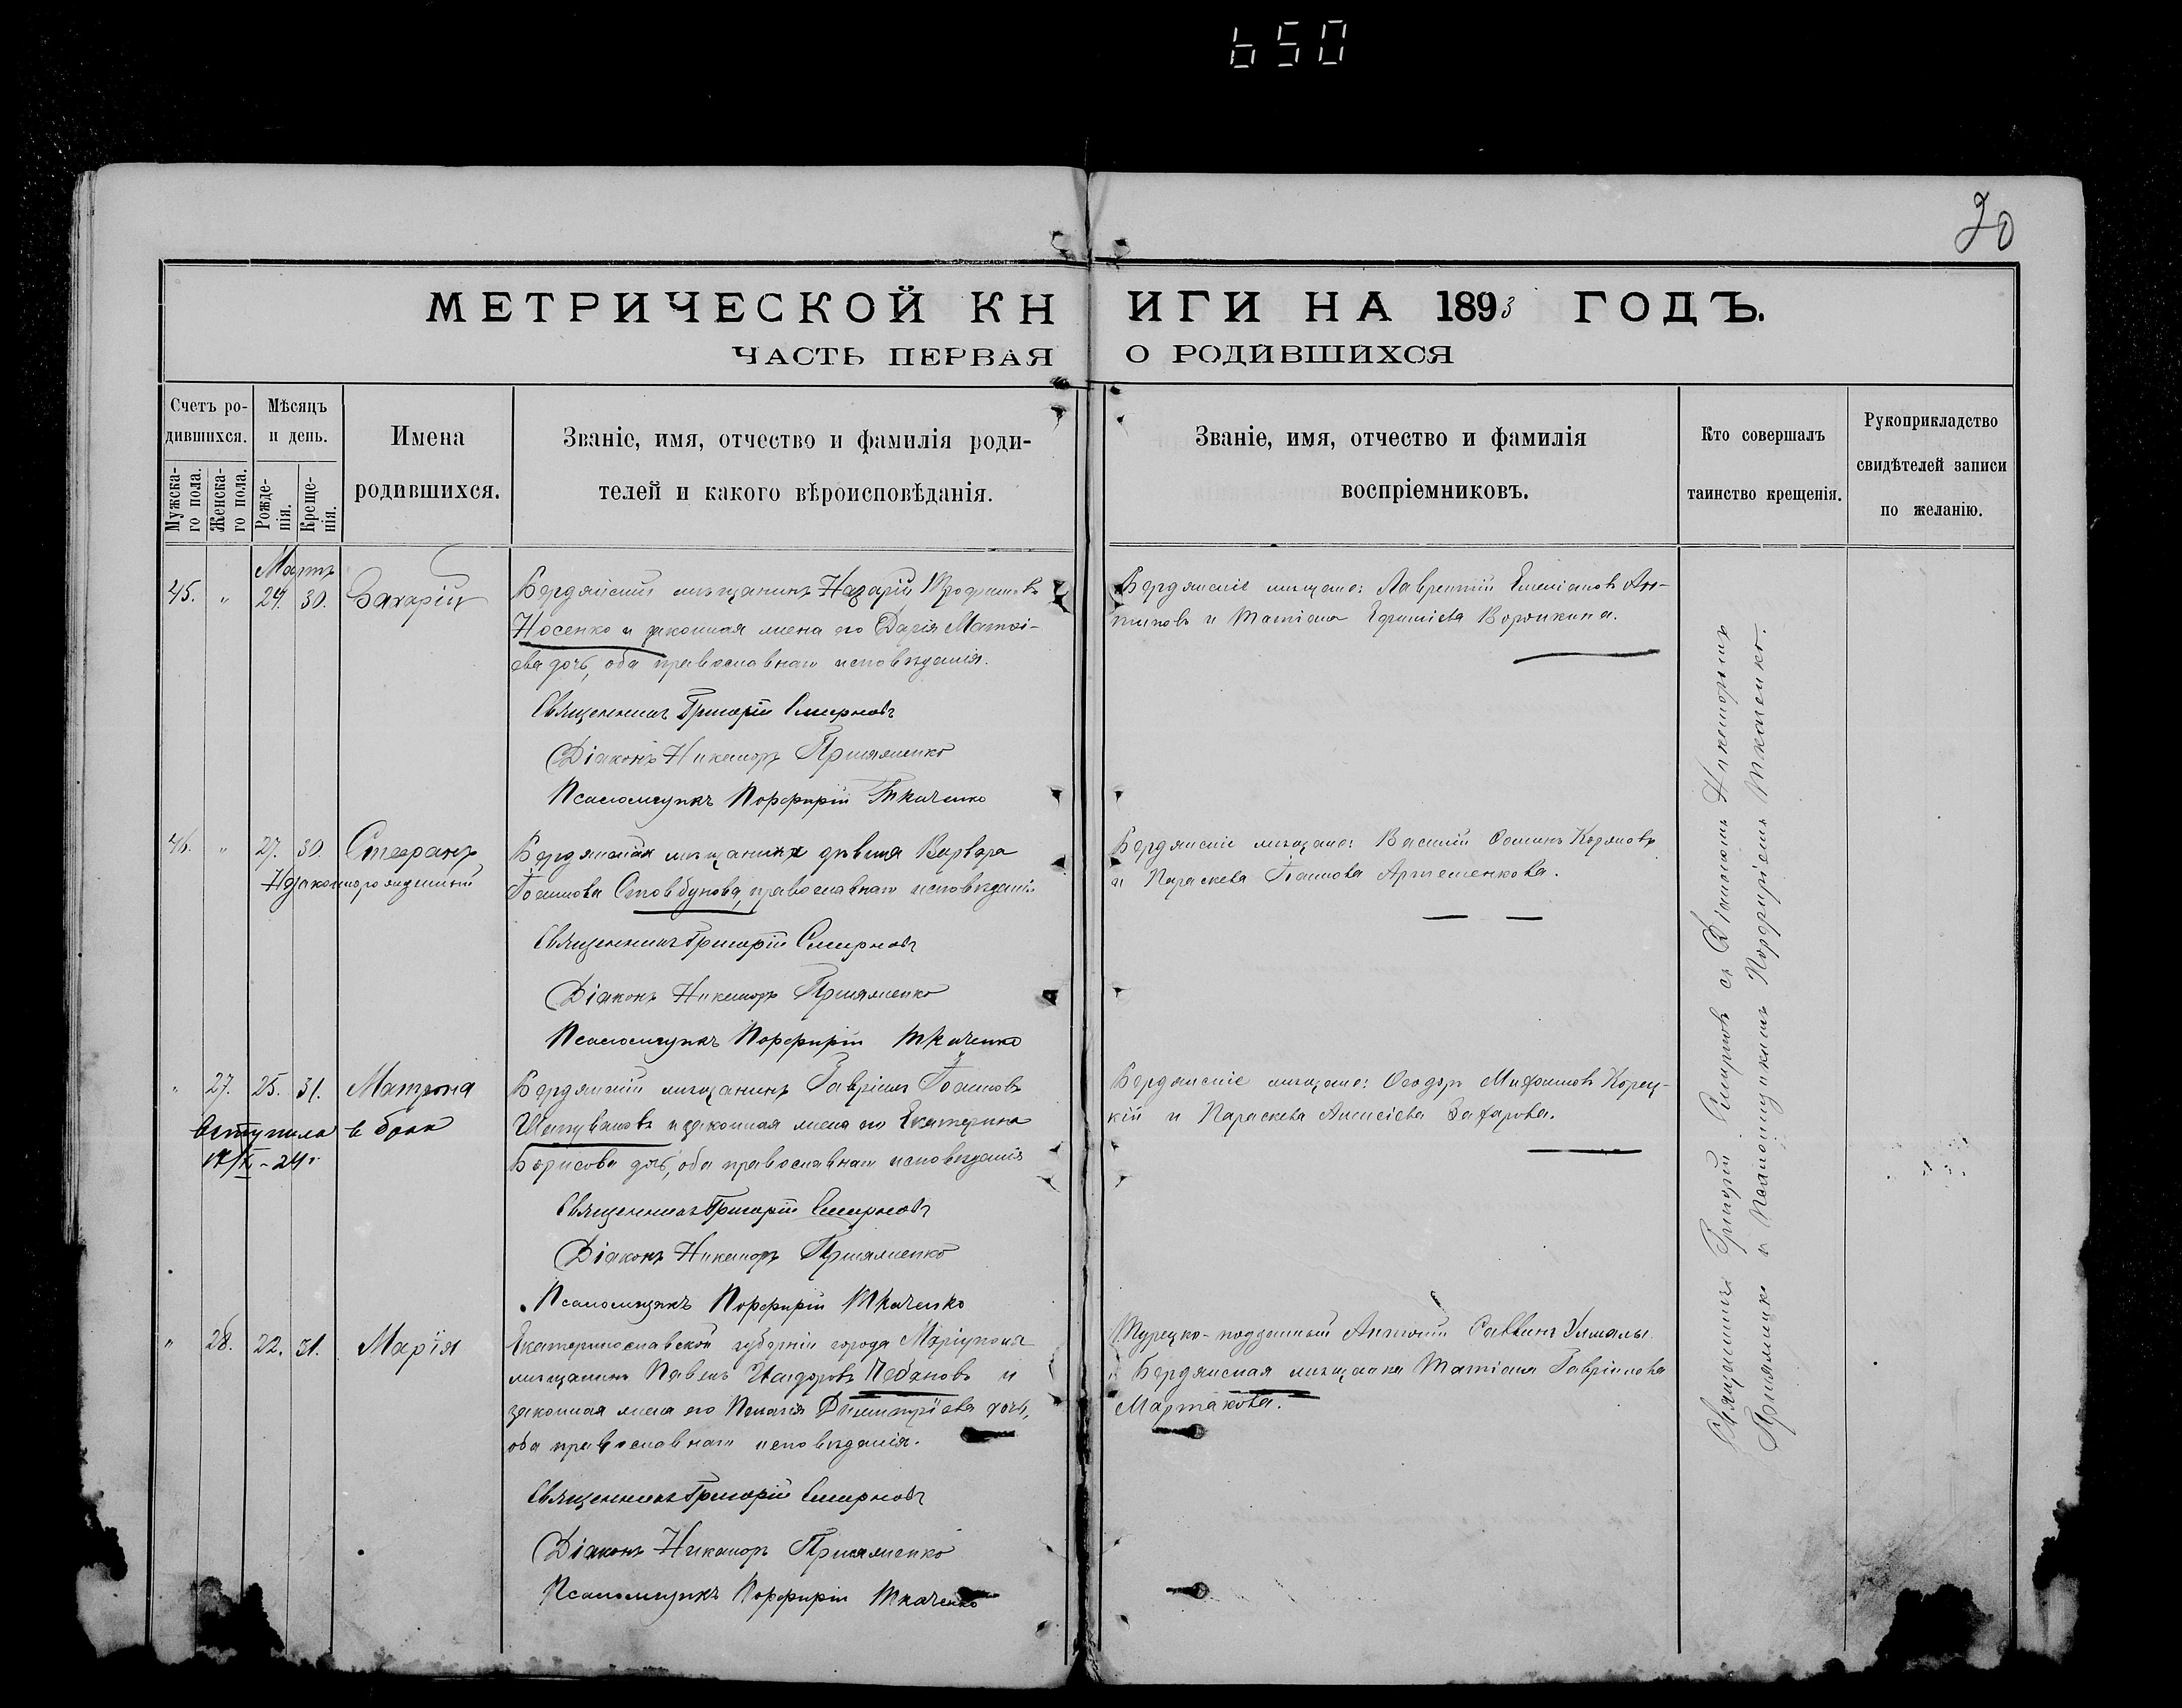 650
20
МЕТРИЧЕСКОЙ КНИГИ НА 1893 ГОДЪ.
ЧАСТЬ ПЕРВАЯ О РОДИВШИХСЯ
Счетъ ро-
дившихся.
Мужска-
го пола.
Женска-
го пола.
Мѣсяцъ
и день.
Рожде-
нія.
Креще-
нія.
Имена
родившихся.
Званіе, имя, отчество и фамилія роди-
телей и какого вѣроисповѣданія.
Званіе, имя, отчество и фамилія
воспріемниковъ.
Кто совершалъ
таинство крещенія.
Рукоприкладство
свидѣтелей записи
по желанію.
Мартъ
45. " 24. 30. Захарій
Бердянскій мѣщанинъ Назарій Трофимовъ
Носенко и законная жена его Дарія Матѳі-
ева дочь, оба православнаго исповѣданія.
Священникъ Григорій Смирновъ
Діаконъ Никаноръ
Псаломщикъ Порфирій Ткаченко
Бердянскіе мѣщане: Лаврентій Емеліановъ Ан-
типовъ и Татіана Ефиміева
46. " 27. 30. Стефанъ
Незаконнорожденный
Бердянская мѣщанка дѣвица Варвара
Іоаннова Стовбунова, православнаго исповѣданія
Священникъ Григорій Смирновъ
Діаконъ Никаноръ
Псаломщикъ Порфирій Ткаченко
Бердянскіе мѣщане: Василій Ѳоминъ
и Параскева Іоаннова Артеменкова.
" 27. 25. 31. Матрона
вступила в брак
Бердянскій мѣщанинъ Гавріилъ Іоанновъ
Шаповаловъ и законная жена его Екатерина
Борисова дочь, оба православнаго исповѣданія
Священникъ Григорій Смирновъ
Діаконъ Никаноръ
Псаломщикъ Порфирій Ткаченко
Бердянскіе мѣщане: Ѳеодоръ Корец-
кій и Параскева Алексіева Захарова.
" 28. 22. 31. Марія
Екатеринославской губерніи города Маріуполя
мѣщанинъ Павелъ Исидоровъ и
законная жена его Пелагія Димитріева дочь,
оба православнаго исповѣданія.
Священникъ Григорій Смирновъ
Діаконъ Никаноръ
Псаломщикъ Порфирій Ткаченко
Турецко-подданный Антоній Саввинъ
и Бердянская мѣщанка Татіана Гавріилова
Мартакова.
Священникъ Григорій Смирновъ съ Діакономъ Никаноромъ
и Псаломщикомъ Порфиріемъ Ткаченко.